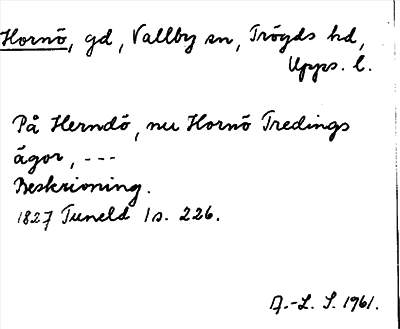 Hornö, gd, Vallby sn, Trögds hd,
Upps. l.
På Herndö, nu Hornö Tredings
ägor, ---
Beskrivning.
1827 Tuneld 1 s. 226.
A.-L. S. 1961.